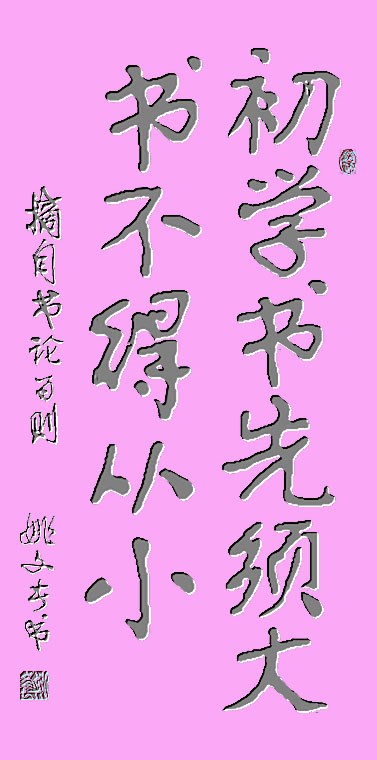 初学书先须大
书不得从小
摘自书论百则
姚文奇书